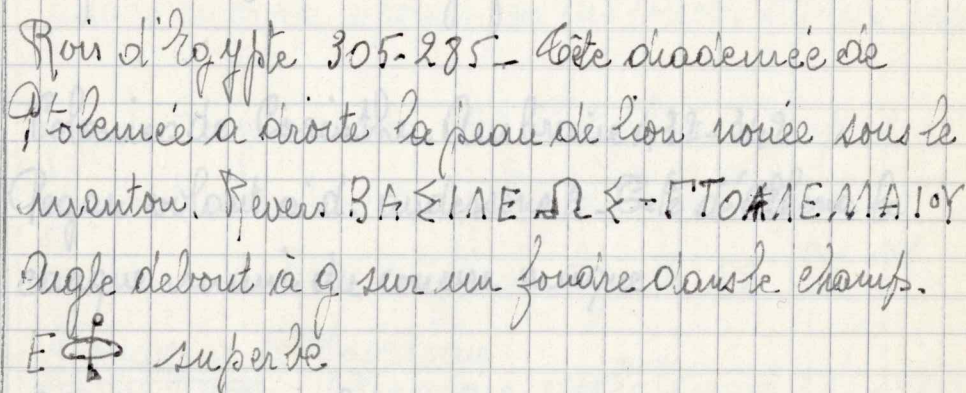 Rois d'Egypte 305-285 - Tête diadémée de
Ptolemée a droite la peau de lion nouée sous le
menton. Revers ΒΑΣΙΛΕΩΣ-ΠΤΟΛΕΜΑΙΟΥ
Aigle debout à g sur un foudre dans le champ.
E superbe